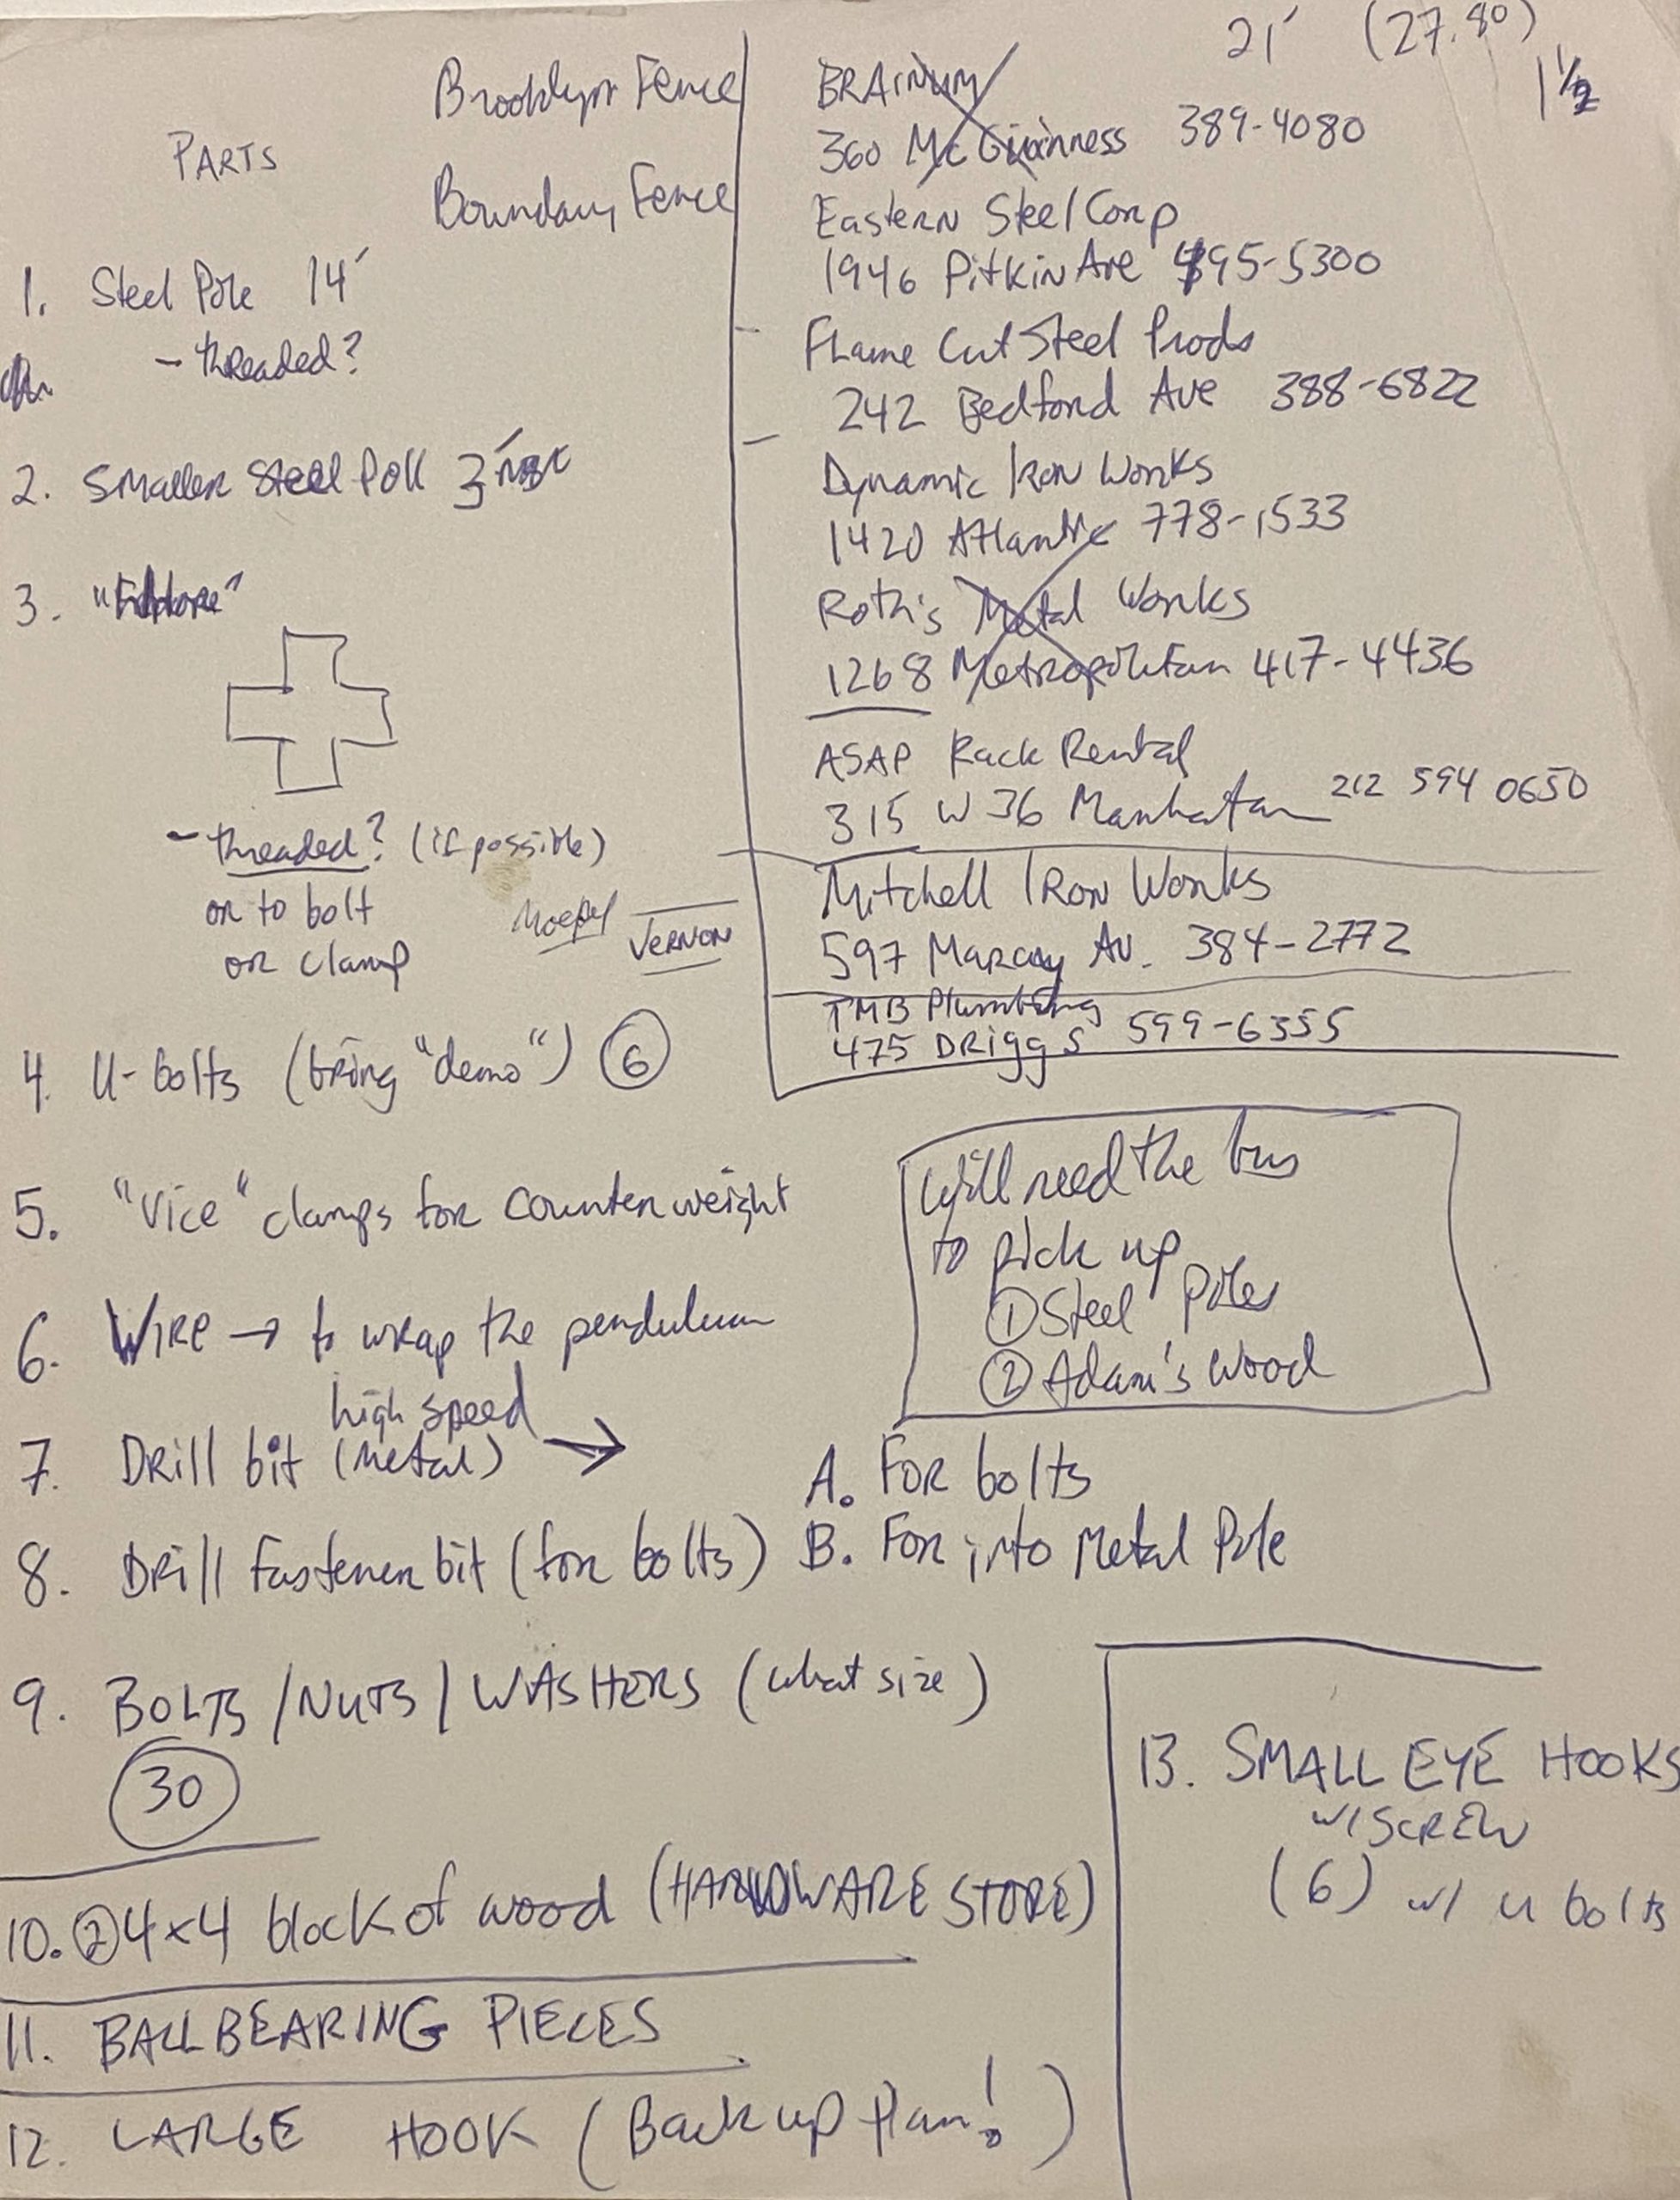 PARTS
Brooklyn Fence
Boundary Fence
1. Steel Pole 14'
- threaded?
2. Smaller Steel Poll 3'
3. "
- threaded? (if possible)
or to bolt
or clamp
VERNON
4. U-bolts (bring "demo") 6
5. "Vice" clamps for counterweight
6. Wire → to wrap the pendulum
high speed
7. Drill bit (metal) →
8. Drill fastener bit (for bolts)
9. BOLTS / NUTS / WASHERS (what size)
30
10. 2 4x4 block of wood (HARDWARE STORE)
11. BALLBEARING PIECES
12. LARGE HOOK (Backup plan!)
21' (27.80)
1 1/2
BRAINUM
360 McGuinness 389-4080
Eastern Steel Corp
1946 Pitkin Ave 495-5300
Flame Cut Steel Prods
242 Bedford Ave 388-6822
Dynamic Iron Works
1420 Atlantic 778-1533
Roth's Metal Works
1268 Metropolitan 417-4436
ASAP Rack Rental
315 W 36 Manhatan 212 594 0650
Mitchell Iron Works
597 Marcy Av. 384-2772
TMB Plumbing
475 DRiggs 599-6355
Will need the bus
to pick up
① Steel Poles
② Adam's wood
A. For bolts
B. For into Metal Pole
13. SMALL EYE HOOKS
w/ SCREW
(6) w/ u bolts